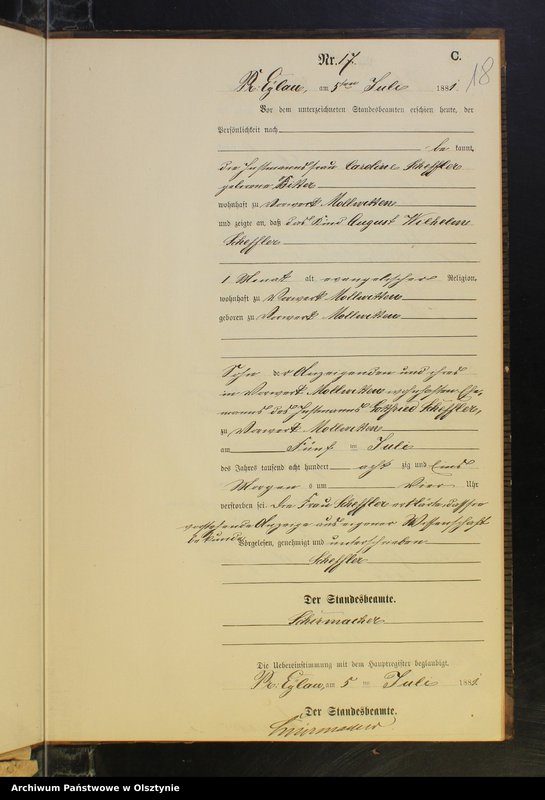 Nr. 17.
C.
18
Pr. Eylau, am 5ten Juli 1881.
Vor dem unterzeichneten Standesbeamten erschien heute, der
Persönlichkeit nach
be kannt,
die Instmannsfrau Caroline Scheffler
geborene
wohnhaft zu Vorwerk Mollwitten
und zeigte an, daß das Kind August Wilhelm
Scheffler
1 Monat alt evangelischer Religion,
wohnhaft zu Vorwerk Mollwitten
geboren zu Vorwerk Mollwitten
Sohn der Anzeigenden und ihres
im Vorwerk Mollwitten wohnhaften Ehe-
manns des Instmanns Gottfried Scheffler,
zu Vorwerk Mollwitten
am Fünf ten Juli
des Jahres tausend acht hundert acht zig und Eins
Morgens um Vier Uhr
verstorben sei. Die Frau Scheffler erklärte daß sie
vorstehende Anzeige aus eigener Wissenschaft
bekunde.
Vorgelesen, genehmigt und unterschrieben
Scheffler
Der Standesbeamte.
Schirmacher
Die Uebereinstimmung mit dem Hauptregister beglaubigt.
Pr. Eylau, am 5 ten Juli 1881.
Der Standesbeamte.
Schirmacher
Archiwum Państwowe w Olsztynie